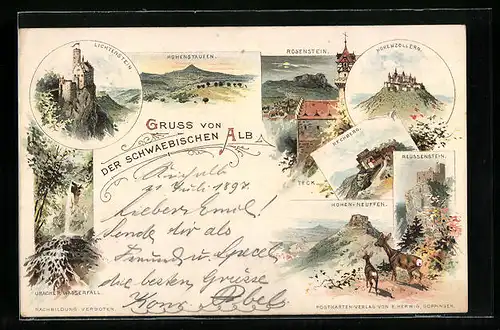 LICHTENSTEIN.
HOHENSTAUFEN.
ROSENSTEIN.
HOHENZOLLERN.
GRUSS VON
DER SCHWAEBISCHEN ALB
RECHBERG.
TECK.
REUSSENSTEIN.
HOHEN-NEUFFEN.
21 Juli 1897.
Lieber Emil!
Sende dir als
Freund u.
die besten Grüsse
URACHER WASSERFALL.
NACHBILDUNG VERBOTEN.
POSTKARTEN-VERLAG VON E. HERWIG, GÖPPINGEN.